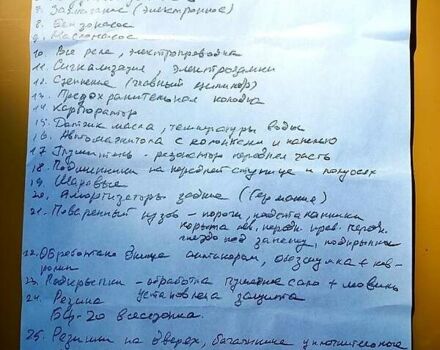 8. Зажигание (электронное)
8. Бензонасос
9. Маслонасос
10. Все реле, электропроводка
11. Сигнализация, электрозамки
12. Сцепление (главный цилиндр)
13. Предохранительная колодка
14. Карбюратор
15. Датчик масла, температуры воды
16. Автомагнитола с колонками и панелью
17. Глушитель - резонатор передняя часть
18. Подшипники на передней ступице и полуосях
19. Шаровые
20. Амортизаторы задние (Германия)
21. Поваренный кузов - пороги, подстаканники
корыта лев. передн. прав. передн.
гнездо под запаску, подкрылки
22. Обработано днище антикором,
23. Подкрылки - обработка Пушечное сало + мовиль
установлена защита
24. Резина
БЦ-20 всесезонка.
25. Резинки на дверях, багажнике уплотнительное